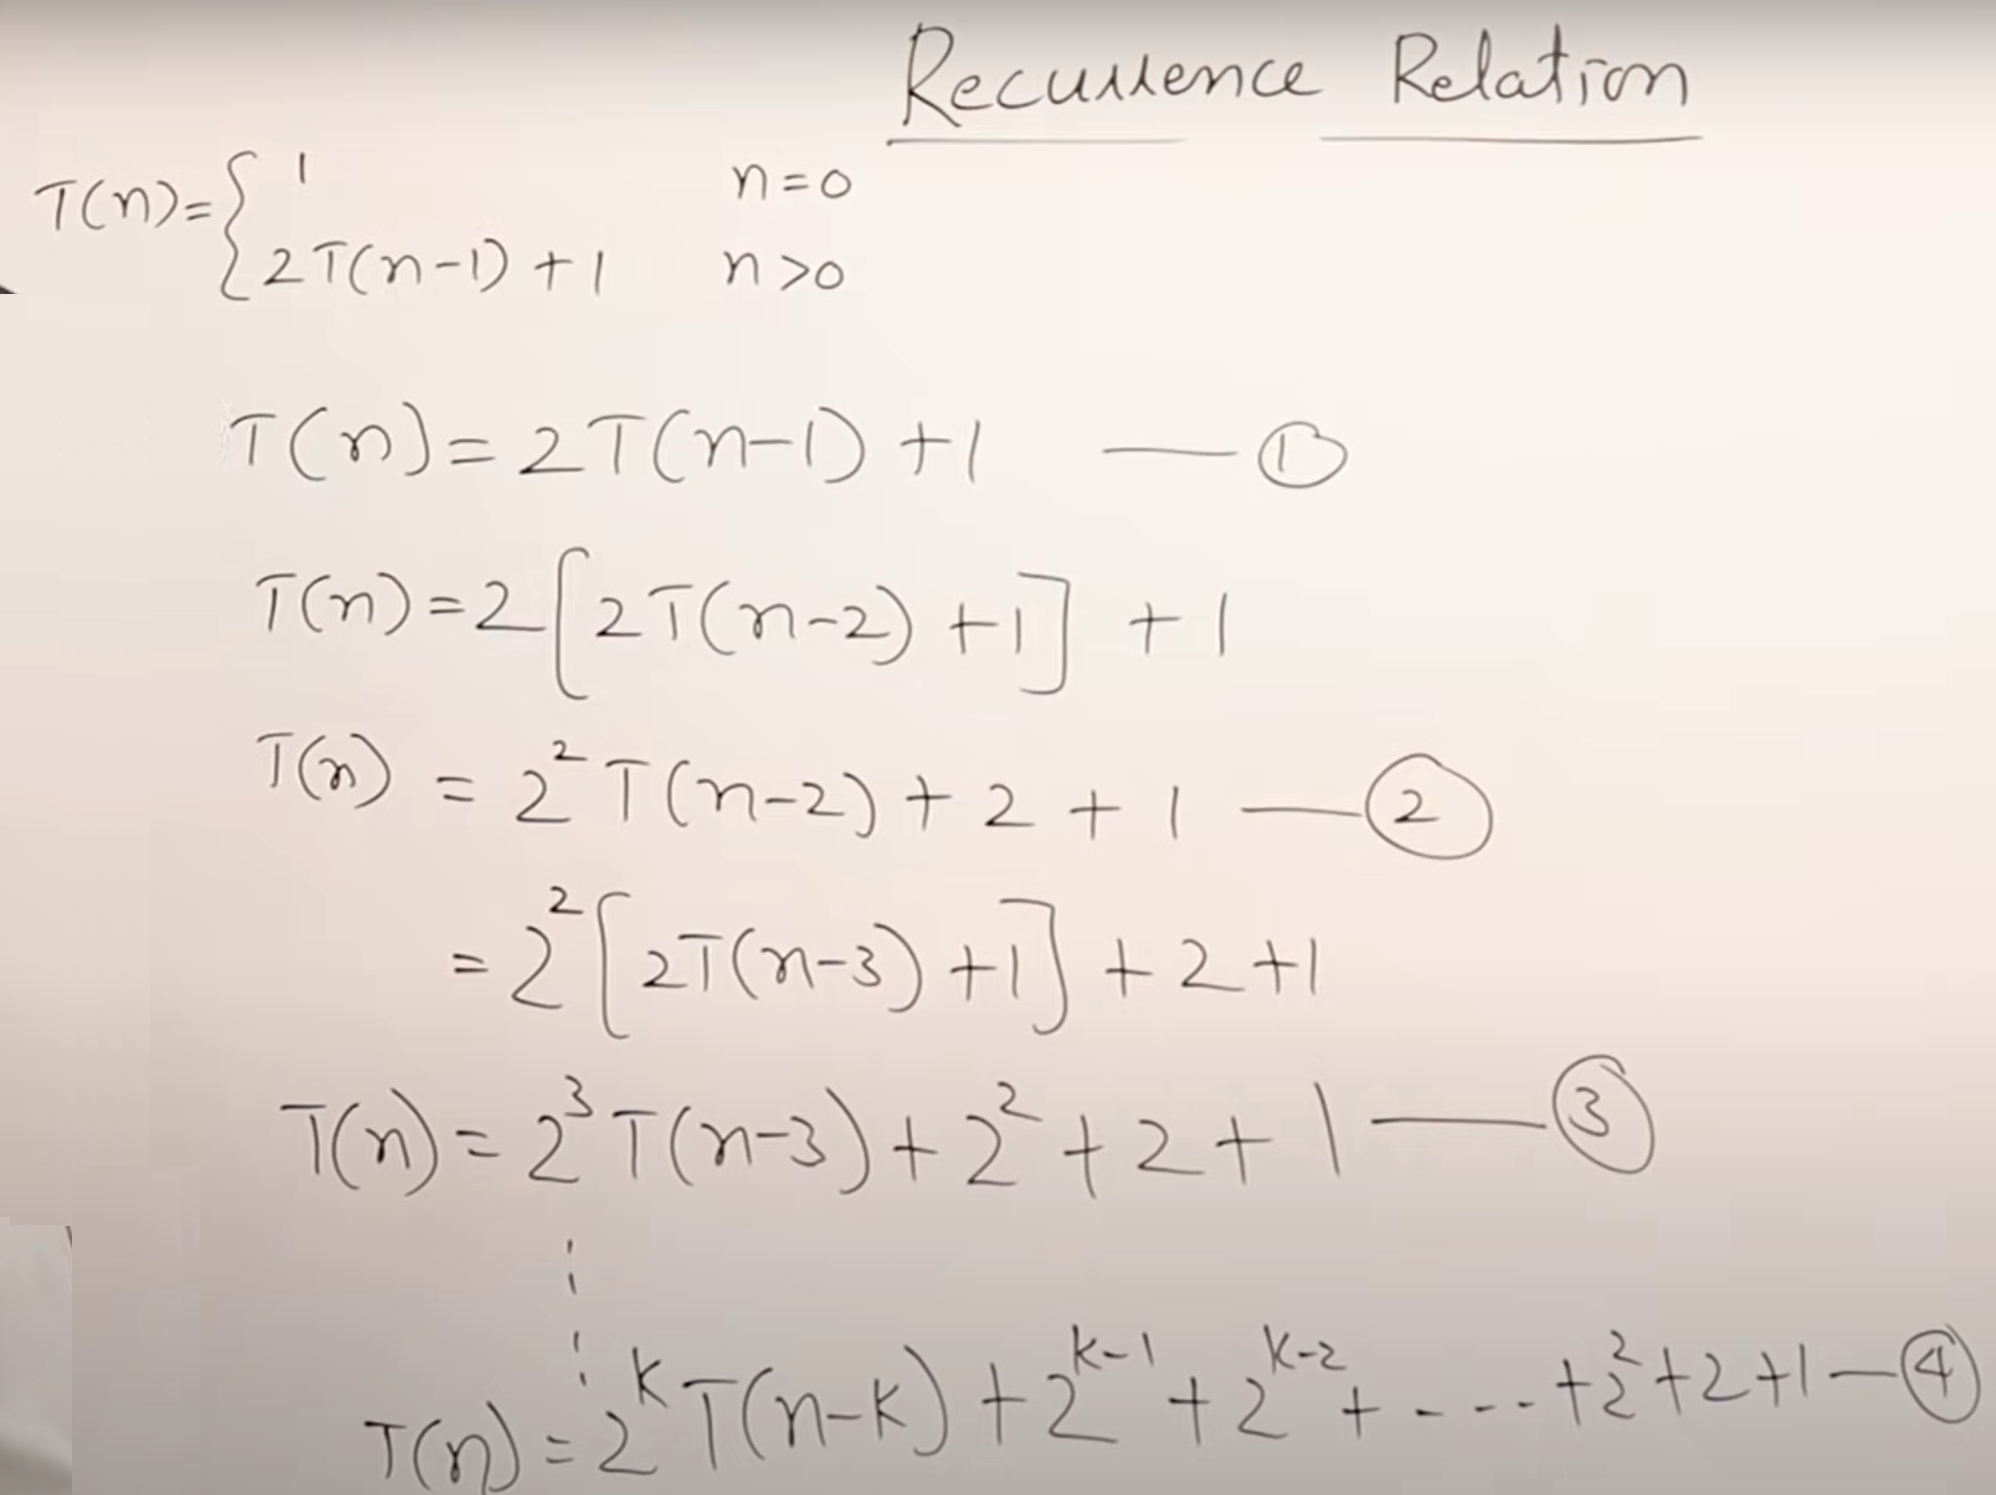 Recurrence Relation
T(n)= { 1 n=0
2T(n-1)+1 n>0
T(n)=2T(n-1)+1 —①
T(n)=2[2T(n-2)+1]+1
T(n) = 2²T(n-2)+2+1 —②
=2²[2T(n-3)+1]+2+1
T(n)=2³T(n-3)+2²+2+1 —③
T(n)=2ᴷT(n-K)+2ᴷ⁻¹+2ᴷ⁻²+----+2²+2+1—④